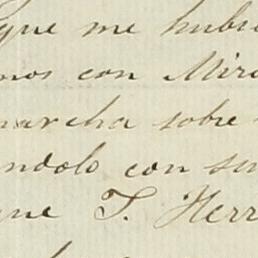 que me hubi
mos con Mir
marcha sobre
ándolo con su
que T. Herr